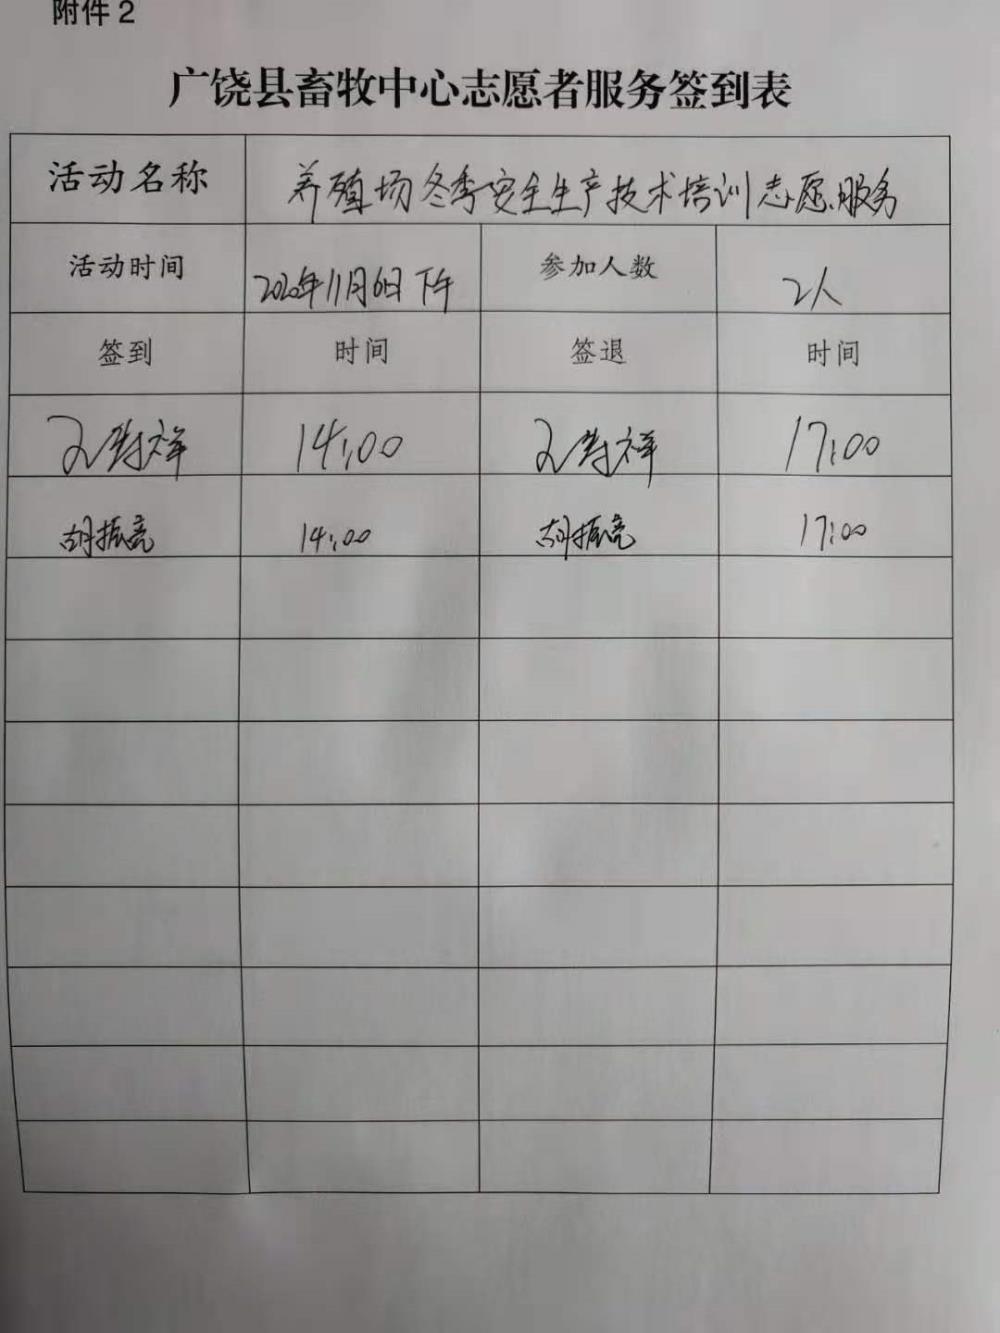 附件2
广饶县畜牧中心志愿者服务签到表
活动名称 养殖场冬季安全生产技术培训志愿服务
活动时间 2020年11月6日下午 参加人数 2人
签到 时间 签退 时间
14:00 17:00
胡振亮 14:00 胡振亮 17:00